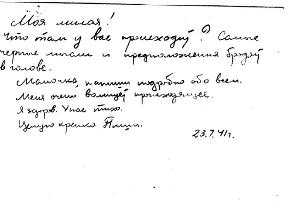 Моя милая!
Что там у вас происходит? Самые
черные мысли и предположения бродят
в голове.
Мамочка, напиши подробно обо всем.
Меня очень волнует происходящее.
Я здоров. У нас тихо.
Целую крепко
23.7.41г.